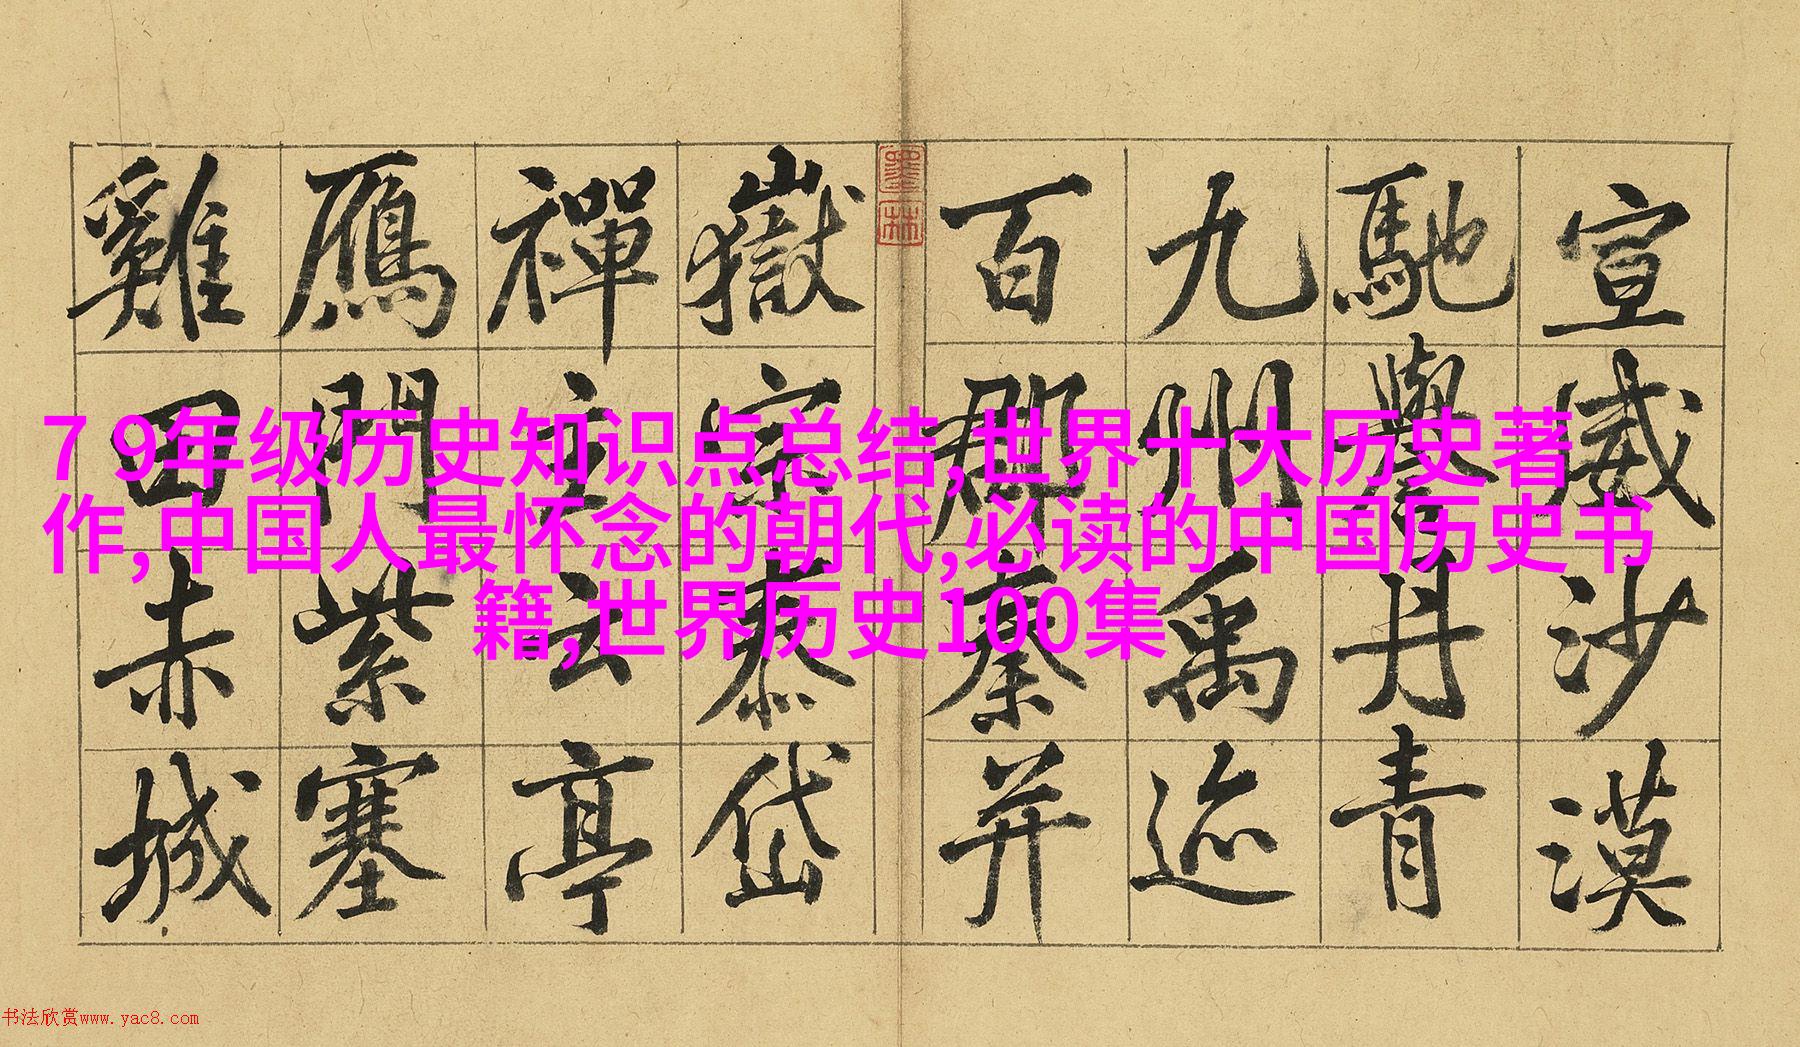 宣威沙漠
馳譽丹青
九州禹迹
百郡秦并
墨林
嶽宗泰岱
禪主云亭
鴈門紫塞
雞田赤城
7 9年级历史知识点总结,世界十大历史著
作,中国人最怀念的朝代,必读的中国历史书
籍,世界历史100集
书法欣赏www.yac8.com